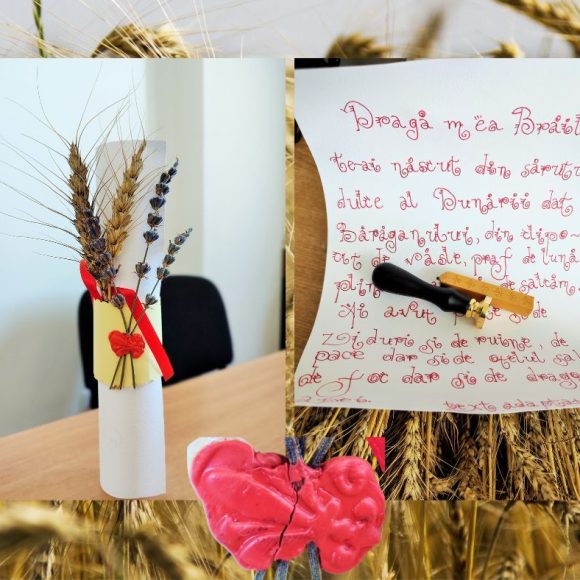 Dragă mea Brăil
te-ai născut din sărutu
dulce al Dunării dat
Bărăganului, din clipo-
cit de vâsle, praf de lună
plin de salcâm,
Ai avut de
Ziduri și de ruine, de
pace dar și de oțelul sa
de foc dar și de drago